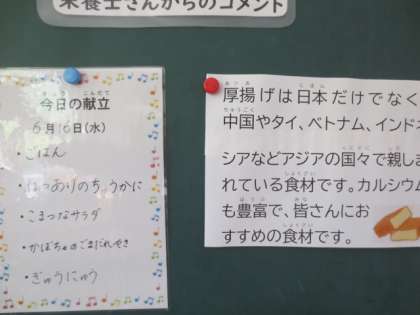 栄養士さんからのコメント
今日の献立
6月16日(水)
・ごはん
・はっぽうりのちゅうかに
・こまつなサラダ
・かぼちゃのごまだれやき
・ぎゅうにゅう
厚揚げは日本だけでなく
中国やタイ、ベトナム、インドネ
シアなどアジアの国々で親しま
れている食材です。カルシウム
も豊富で、皆さんにお
すすめの食材です。